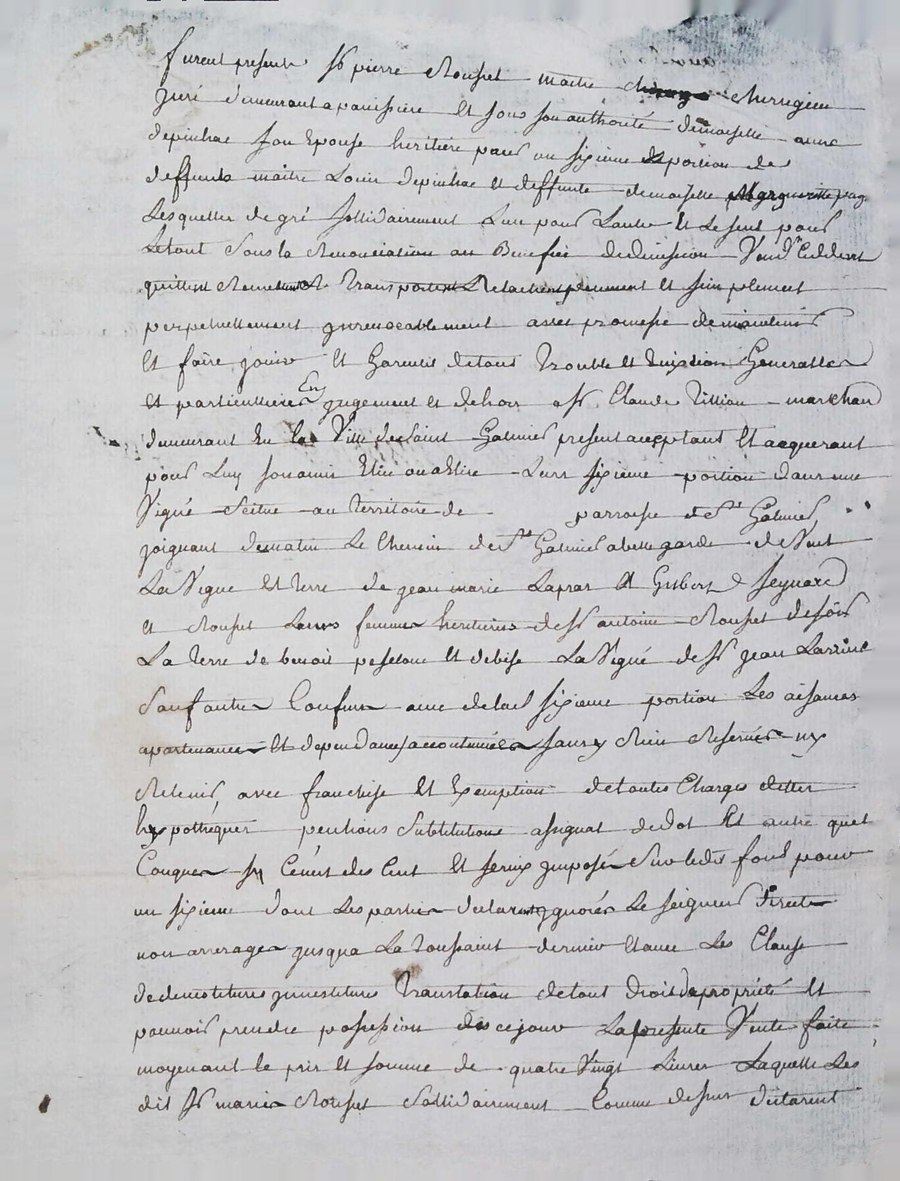 furent presents Sr pierre Rouset maitre chirugien
Juré demeurant a panissiere Et sous son authorité demoiselle anne
depinhac son Epouse heritiere pour un sixieme de portion de
deffunts maitre Louis depinhac et deffunte demoiselle Margueritte
Lesquelles de gré sollidairement Lun pour Lautre Et Le seul pour
Letout sous la Renonciation au Benefice dedivission Vendent Ceddent
quittent Remettent Transportent Relachent plenement Et simplement
perpetuellement Jrrevocablement avec promesse demaintenir
Et faire jouir Et Garentir detous Trouble Et Eviction Generalles
Et particulliere En jugement et dehors a Sr Claude Tillion marchand
demeurant En La Ville deSaint Galmier present acceptant Et acquerant
pour Luy son amis Elu ou a Elire Leurs sixieme portion dans une
Vigne Scitue au Territoire de parroisse de St Galmier
joignant dematin Le Chemin de St Galmier a bellegarde de Vent
La Vigne Et Terre de jean marie Lapras Et Gilbert Seynard
et Rouset Leurs femmes heritieres de Sr antoine Rouset de soir
La Terre de benoit et debise La Vigne de Sr jean Larrive
Sauf autres Confins avec de lad sixieme portion Les aisances
apartenances Et dependances accoutumées sans y Rien Reserver ny
Retenir avec franchise Et Exemption detoutes Charges dettes
hyppotheques pentions Substitutions assignat dedot Et autre quel
Conques Sy Ce n'est des Cent Et servix Jmposés Sur ledit fond pour
un sixieme dont Les parties declarent Jgnorer Le Seigneur Directe
non arrerages jusqua La Toussaint dernier Et avec Les Clause
dedemestitures Jnvestitures Translation de tout droit depropriété Et
pouvoir prendre possession des cejour La presente Vente faite
moyenant le prix Et somme de quatre Vingt Livres Laquelle Les
dit Sr mariés Rouset Sollidairement Comme dessus declarent